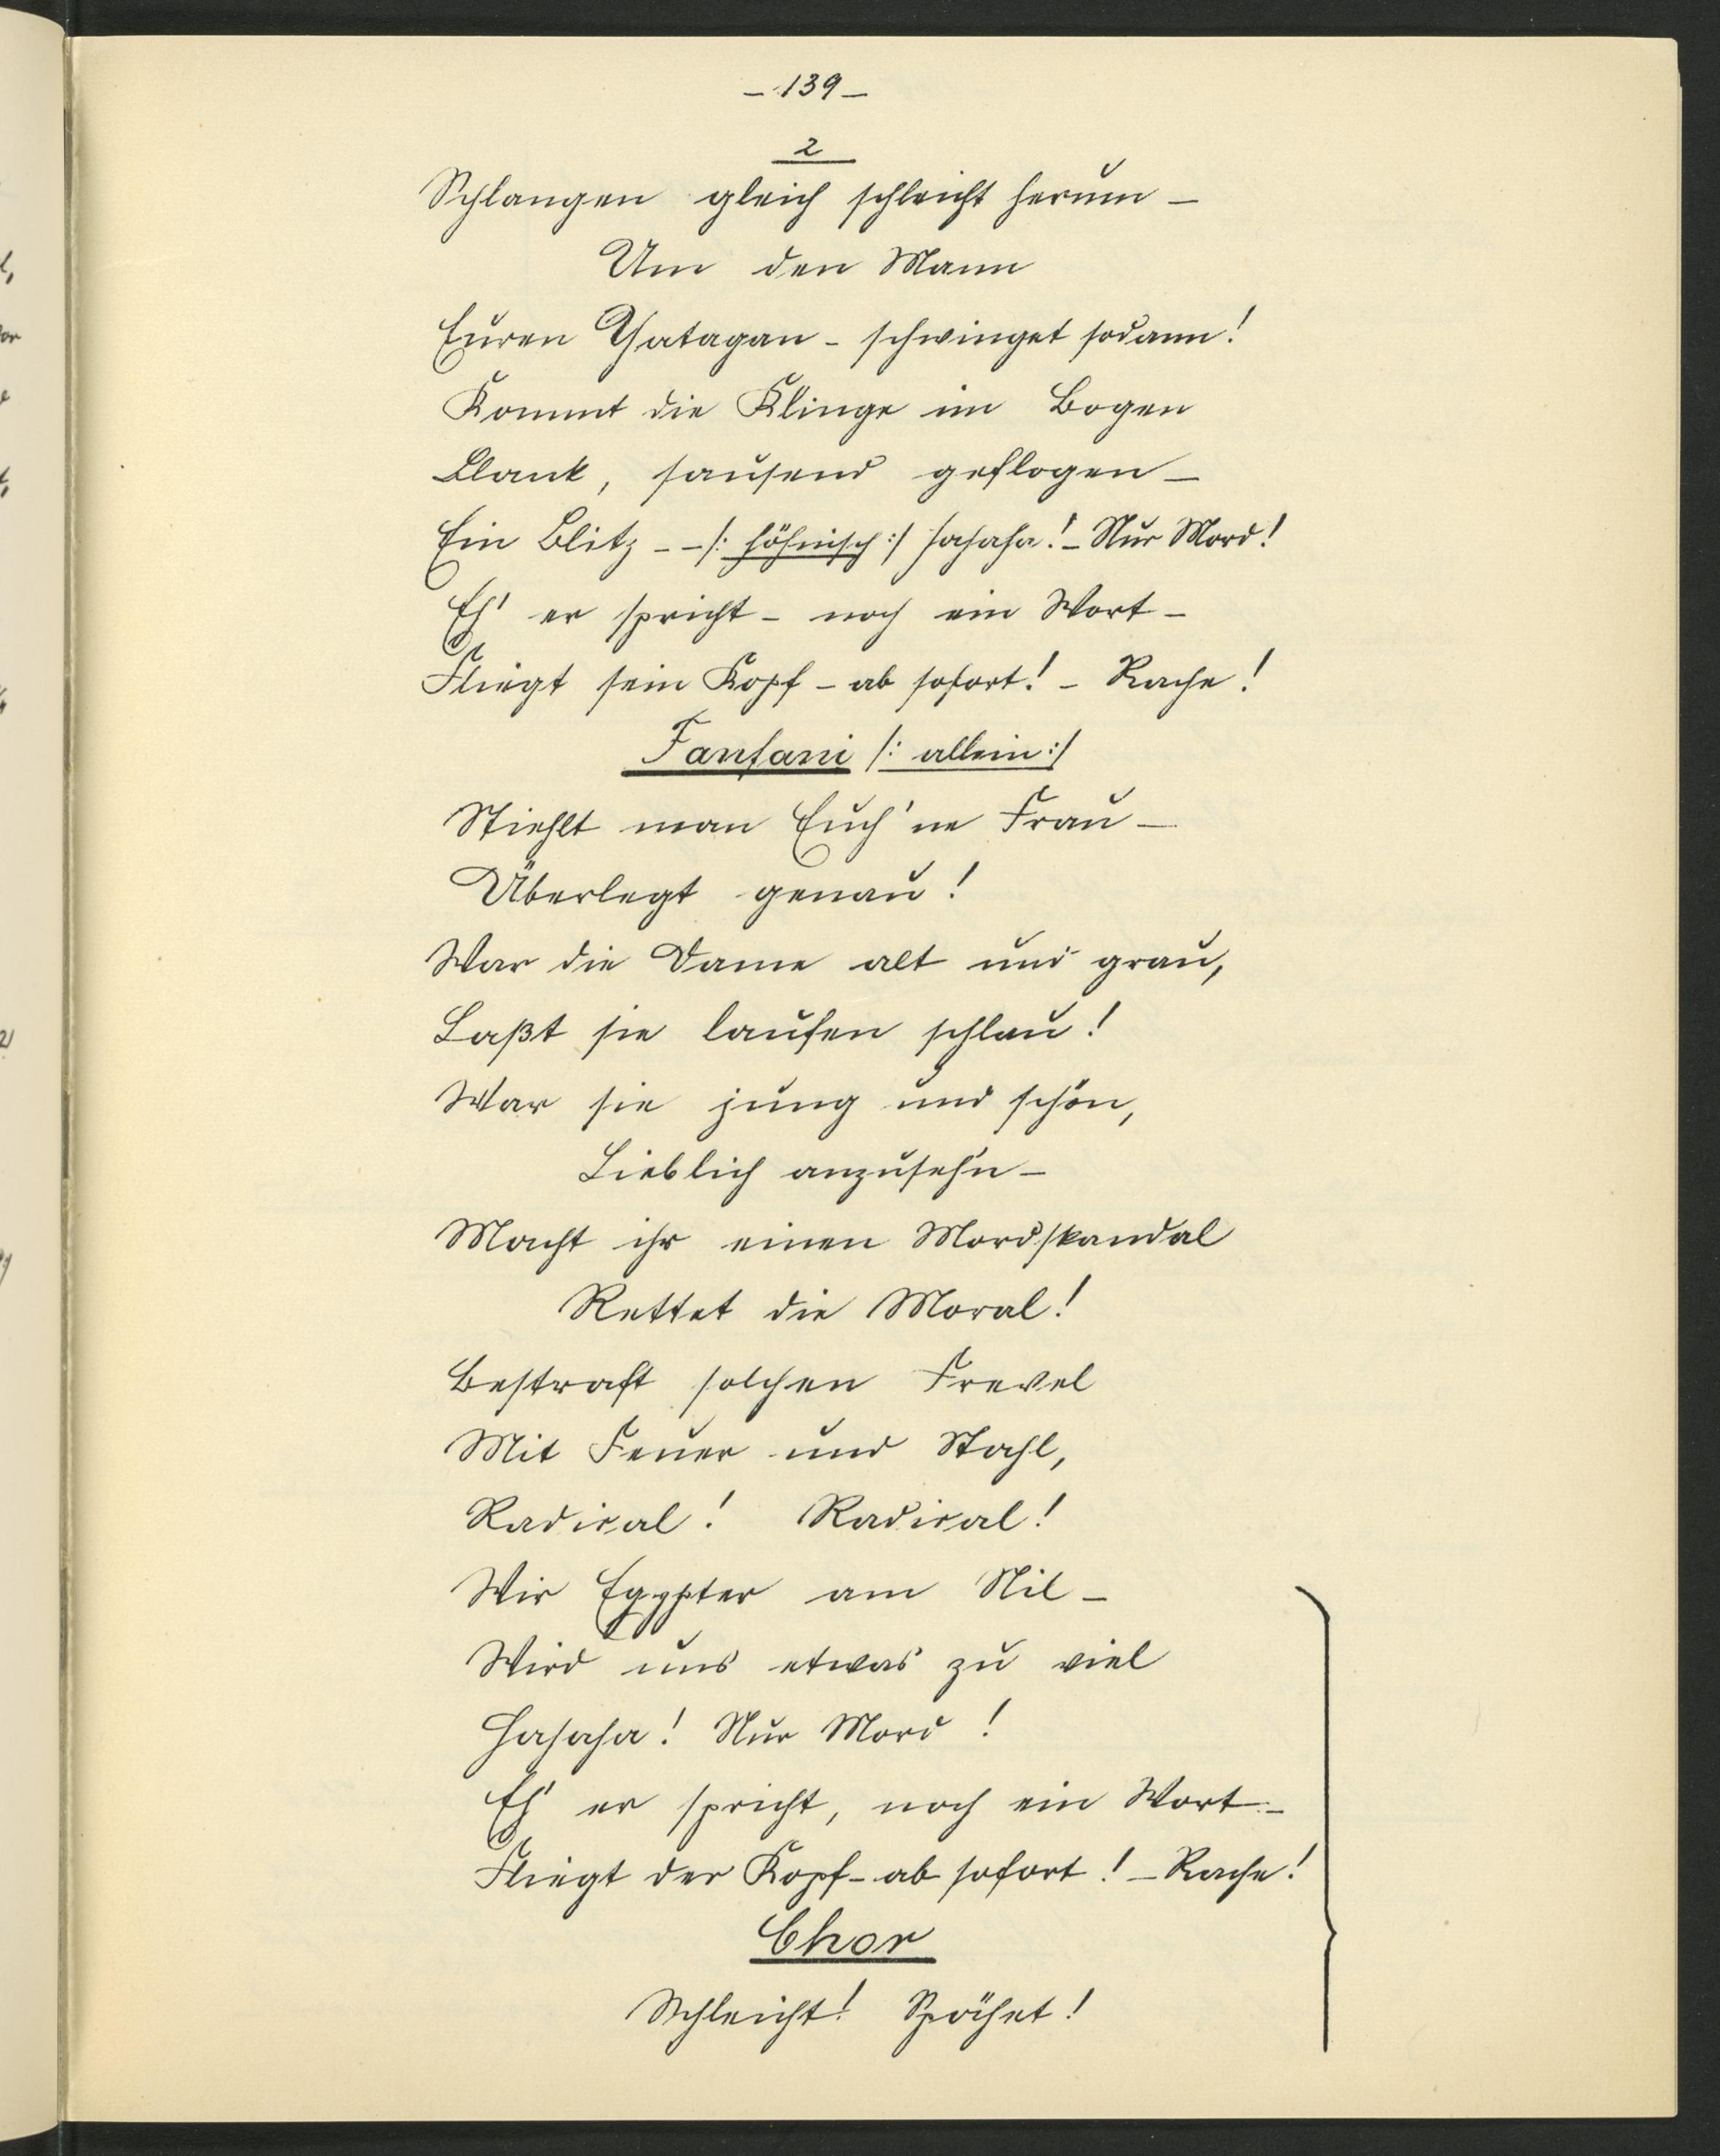 – 139 –
2
Schlangen gleich schleicht herum –
Um den Mann
Euren Yatagan – schwinget sodann!
Kommt die Klinge im Bogen
Blank, sausend geflogen –
Ein Blitz – – /: höhnisch :/ hahaha! – Nur Mord!
Eh' er spricht – noch ein Wort –
Fliegt sein Kopf – ab sofort! – Rache!
Fanfani /: allein :/
Stiehlt man Euch 'ne Frau –
Überlegt genau!
War die Dame alt und grau,
Laßt sie laufen schlau!
War sie jung und schön,
Lieblich anzuseh'n –
Macht ihr einen Mordskandal
Rettet die Moral!
Bestraft solchen Frevel
Mit Feuer und Stahl,
Radical! Radical!
Wir Egypter am Nil –
Wird uns etwas zu viel
Hahaha! Nur Mord!
Eh' er spricht, noch ein Wort –
Fliegt der Kopf – ab sofort! – Rache!
Chor
Schleicht! Spähet!